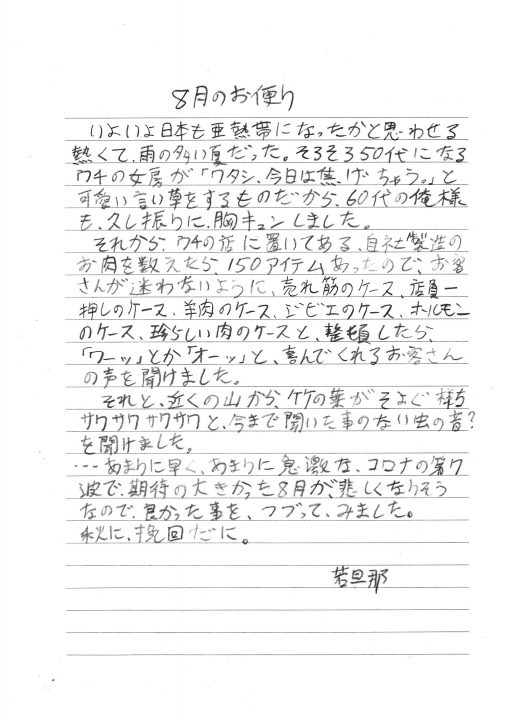 8月のお便り
いよいよ日本も亜熱帯になったかと思わせる
熱くて、雨の多い夏だった。そろそろ50代になる
ウチの女房が「ワタシ、今日は焦げちゃう。」と
可愛い言い草をするものだから、60代の俺様
も、久し振りに、胸キュンしました。
それから、ウチの店に置いてある、自社製造の
お肉を数えたら、150アイテムあったので、お客
さんが迷わないように、売れ筋のケース、店員一
押しのケース、羊肉のケース、ジビエのケース、ホルモン
のケース、珍らしい肉のケースと、整頓したら、
「ワーッ」とか「オーッ」と、喜んでくれるお客さん
の声を聞けました。
それと、近くの山から、ケケの葉がそよぐ様な
サワサワサワサワと、今まで聞いた事のない虫の音?
を聞けました。
…あまりに早く、あまりに急激な、コロナの第7
波で、期待の大きかった8月が、悲しくなりそう
なので、良かった事を、つづって、みました。
秋に、挽回だに。
若旦那